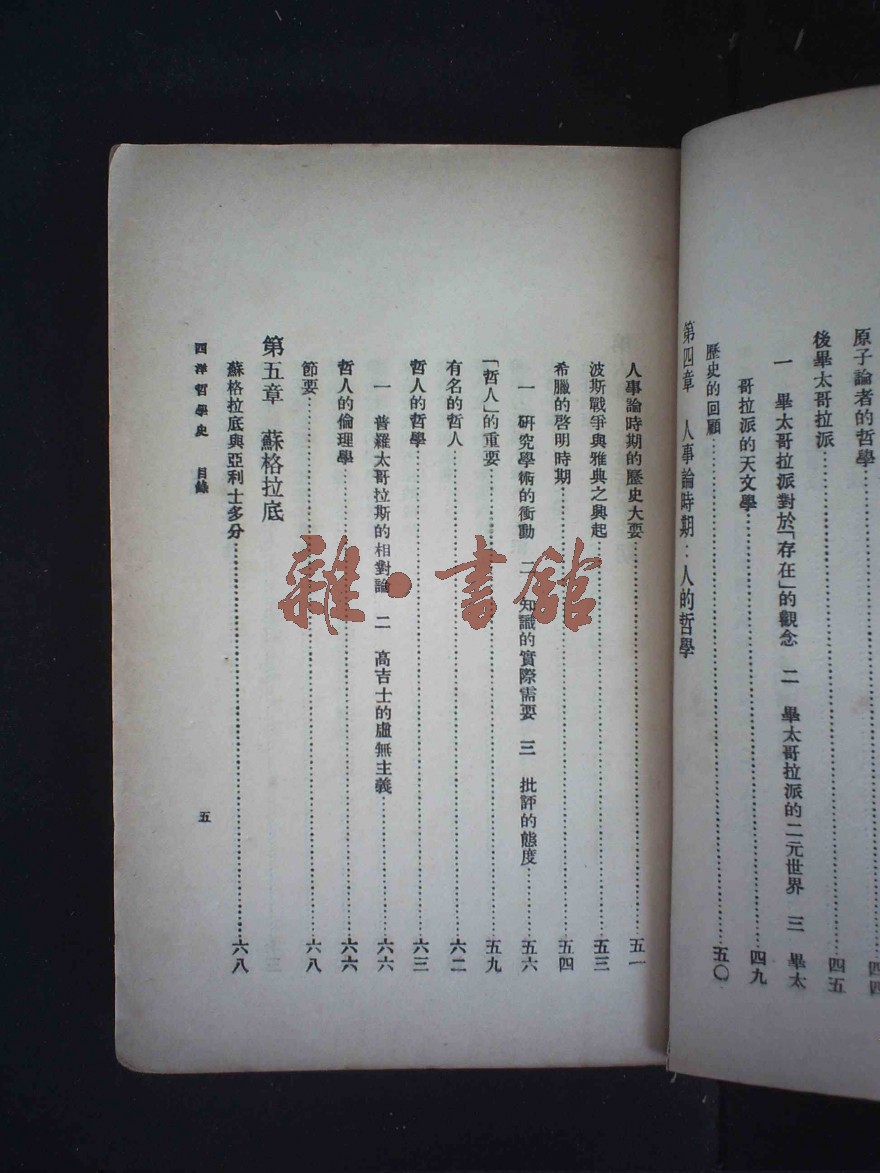 原子論者的哲學……四四
後畢太哥拉派……四五
一 畢太哥拉派對於「存在」的觀念 二 畢太哥拉派的二元世界 三 畢太
哥拉派的天文學……四九
歷史的回顧……五〇
第四章 人事論時期：人的哲學
人事論時期的歷史大要……五一
波斯戰爭與雅典之興起……五三
希臘的啓明時期……五四
一 硏究學術的衝動 二 知識的實際需要 三 批評的態度……五六
「哲人」的重要……五九
有名的哲人……六二
哲人的哲學……六三
一 普羅太哥拉斯的相對論 二 高吉士的虛無主義……六六
哲人的倫理學……六六
節要……六八
第五章 蘇格拉底
蘇格拉底與亞利士多分……六八
西洋哲學史 目錄 五
雜·書館